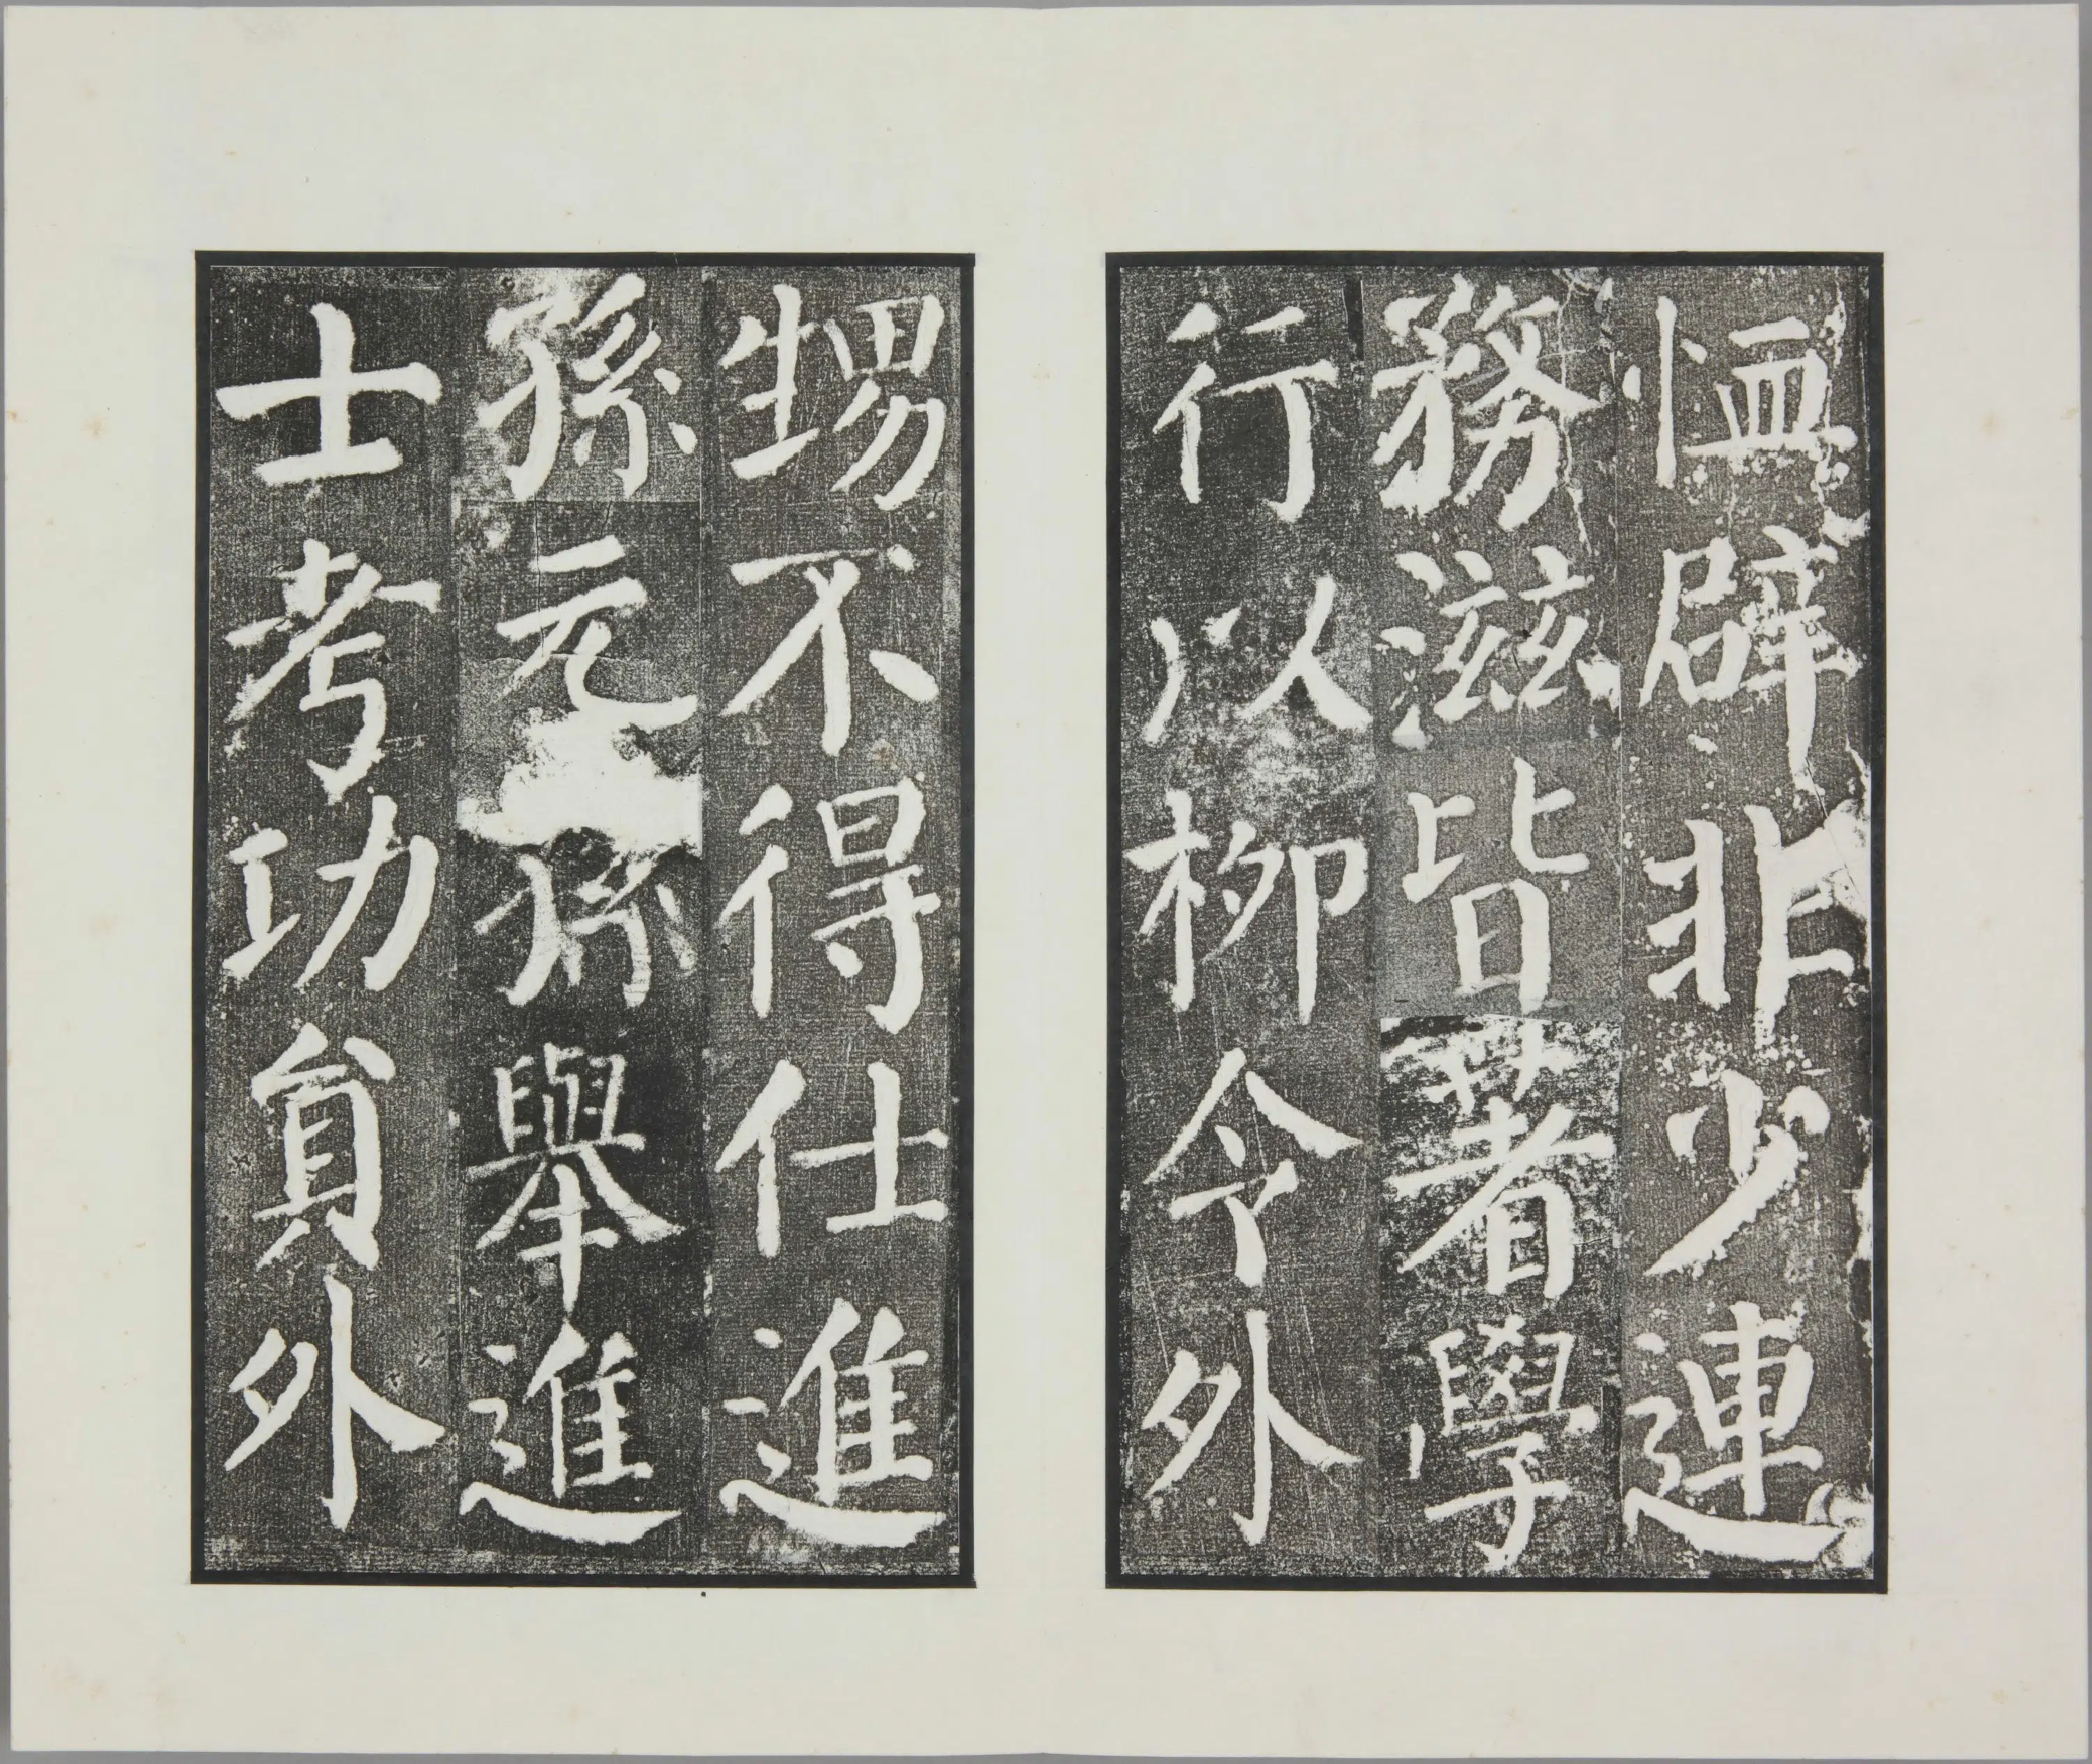 恤辟非少連
務滋皆著學
行以柳令外
甥不得仕進
孫元孫舉進
士考功貟外